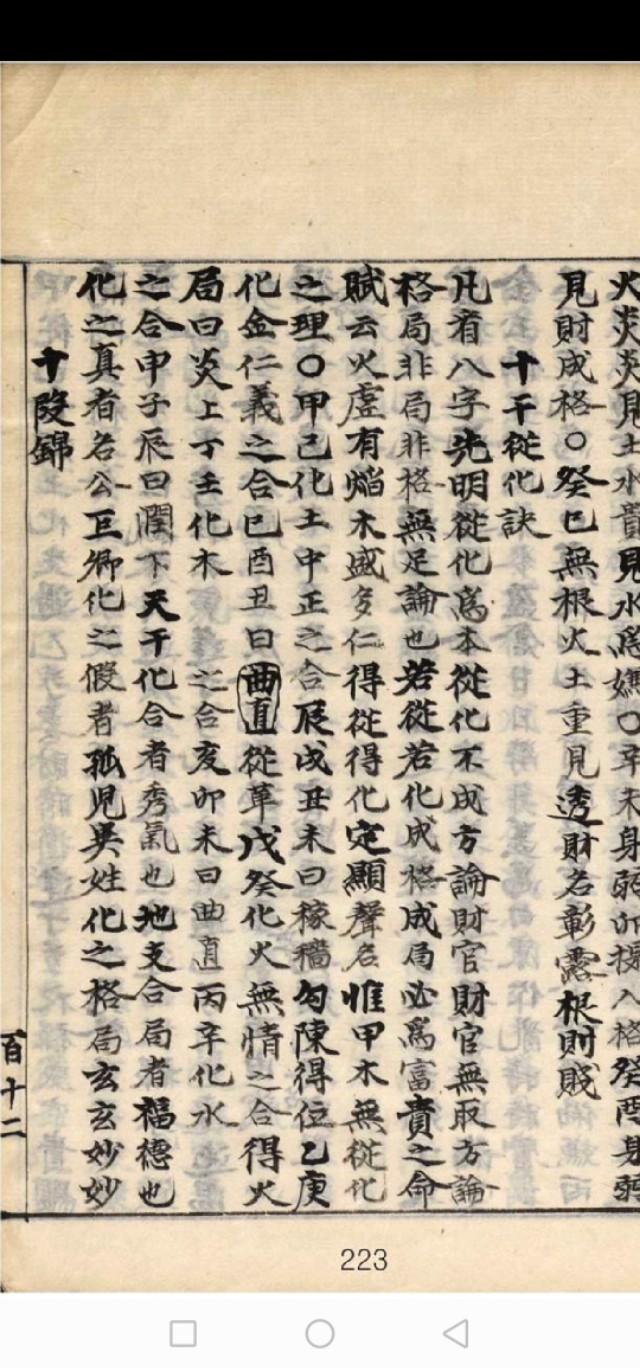 火炎炎見土水⿱見水爲媒〇辛未身弱卯提入格癸酉身弱
見財成格〇癸巳無根火土重見透財名彰露根則賤
十干從化訣
凡看八字先明從化爲本從化不成方論財官財官無取方論
格局非局非格無足論也若從若化成格成局必爲富貴之命
賦云火虛有焰木盛多仁得從得化定顯聲名惟甲木無從化
之理〇甲己化土中正之合辰戌丑未曰稼穡勾陳得位乙庚
化金仁義之合巳酉丑曰曲直從革戊癸化火無情之合得火
局曰炎上丁壬化木 之合亥卯未曰曲直丙辛化水
之合申子辰曰潤下天干化合者秀氣也地支合局者福德也
化之真者名公巨卿化之假者孤兒異姓化之格局玄玄妙妙
十段錦
百十二
223